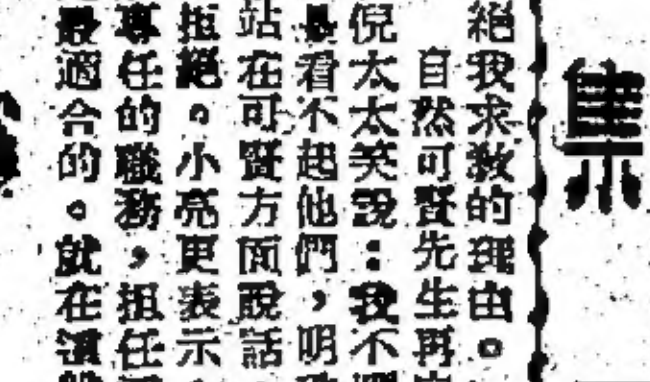 集
絕我求救的理由。
自然可賢先生再
倪太太笑說：我不
看不起他們，明
站在可賢方面說話。
拒絕。小亮更表示
專任的職務，担任
最適合的。就在這